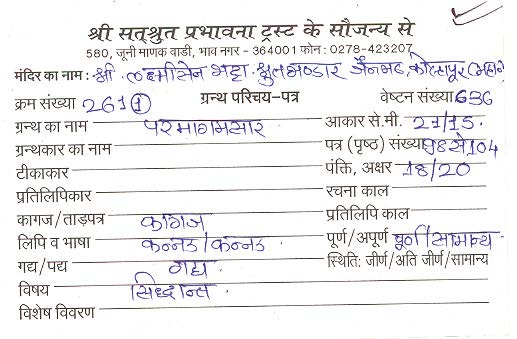 श्री सत्श्रुत प्रभावना ट्रस्ट के सौजन्य से
580, जूनी माणक वाडी, भाव नगर - 364001 फोन : 0278-423207
मंदिर का नाम : श्री. लक्ष्मीसेन भट्टा. श्रुतभण्डार जैनमठ, कोल्हापुर (महा०)
क्रम संख्या 261① ग्रन्थ परिचय-पत्र वेष्टन संख्या 636
ग्रन्थ का नाम परमागमसार आकार से.मी. 21/15.
ग्रन्थकार का नाम पत्र (पृष्ठ) संख्या 98 से 104
टीकाकार पंक्ति, अक्षर 18/20
प्रतिलिपिकार रचना काल
कागज/ताड़पत्र कागज प्रतिलिपि काल
लिपि व भाषा कन्नड/कन्नड. पूर्ण/अपूर्ण पूर्ण/सामान्य.
गद्य/पद्य गद्य स्थिति: जीर्ण/अति जीर्ण/सामान्य
विषय सिद्धान्त.
विशेष विवरण